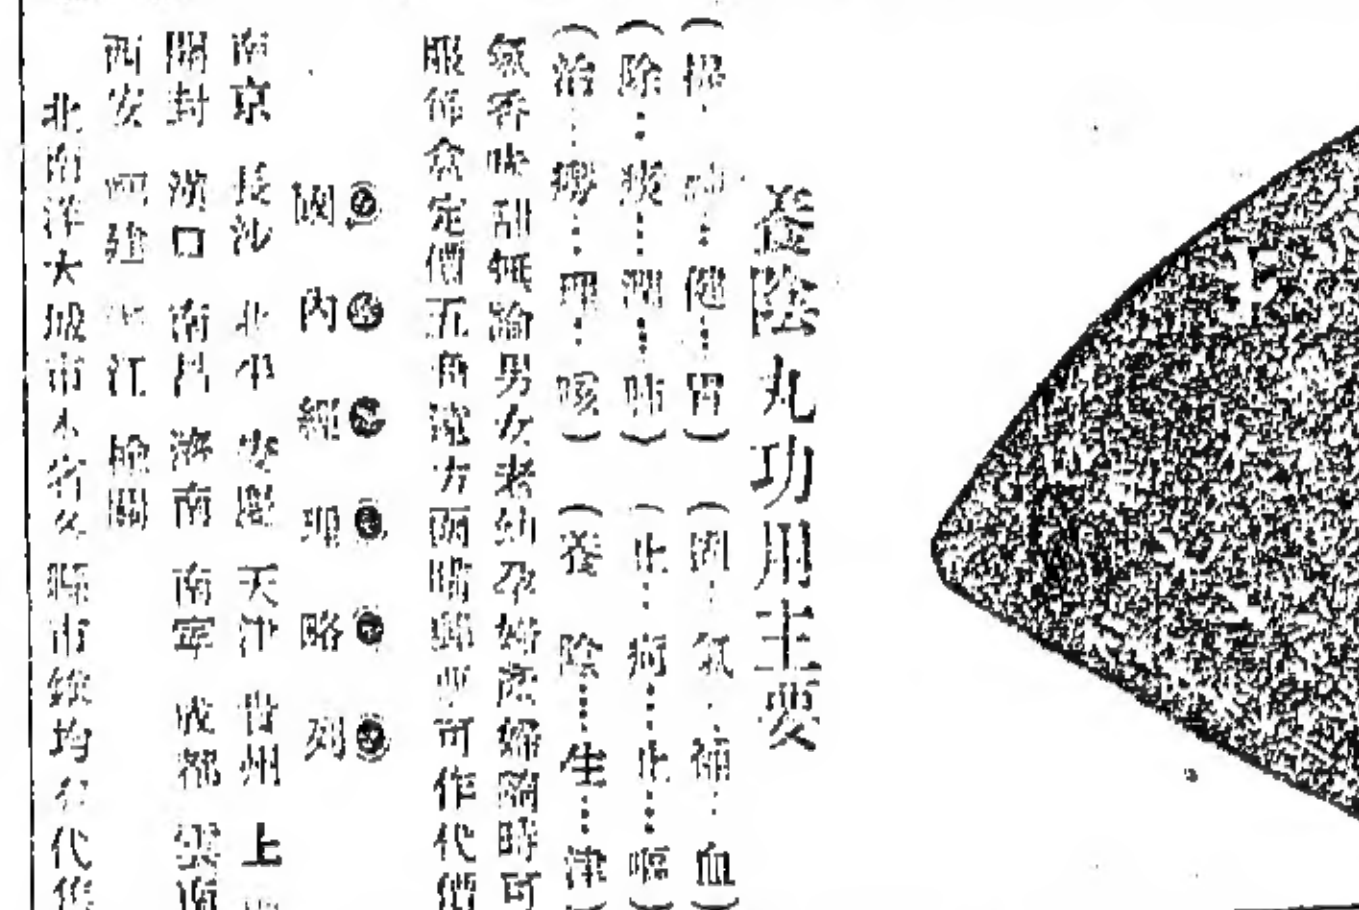 養陰丸功用主要
健胃）（固氣補血
（除痰潤肺）（止痾止嘔
（治癆理咳）（養陰生津
氣香味甜無論男女老幼孕婦產婦隨時可
服作盒定價五角遠方函購郵票可作代價
國內經理略列
南京 長沙 北平 安慶 天津 貴州 上
開封 漢口 南昌 濟南 南寧 成都 雲南
西安 福建 江 榆關
北南洋大城市各省各縣市鎮均有代售